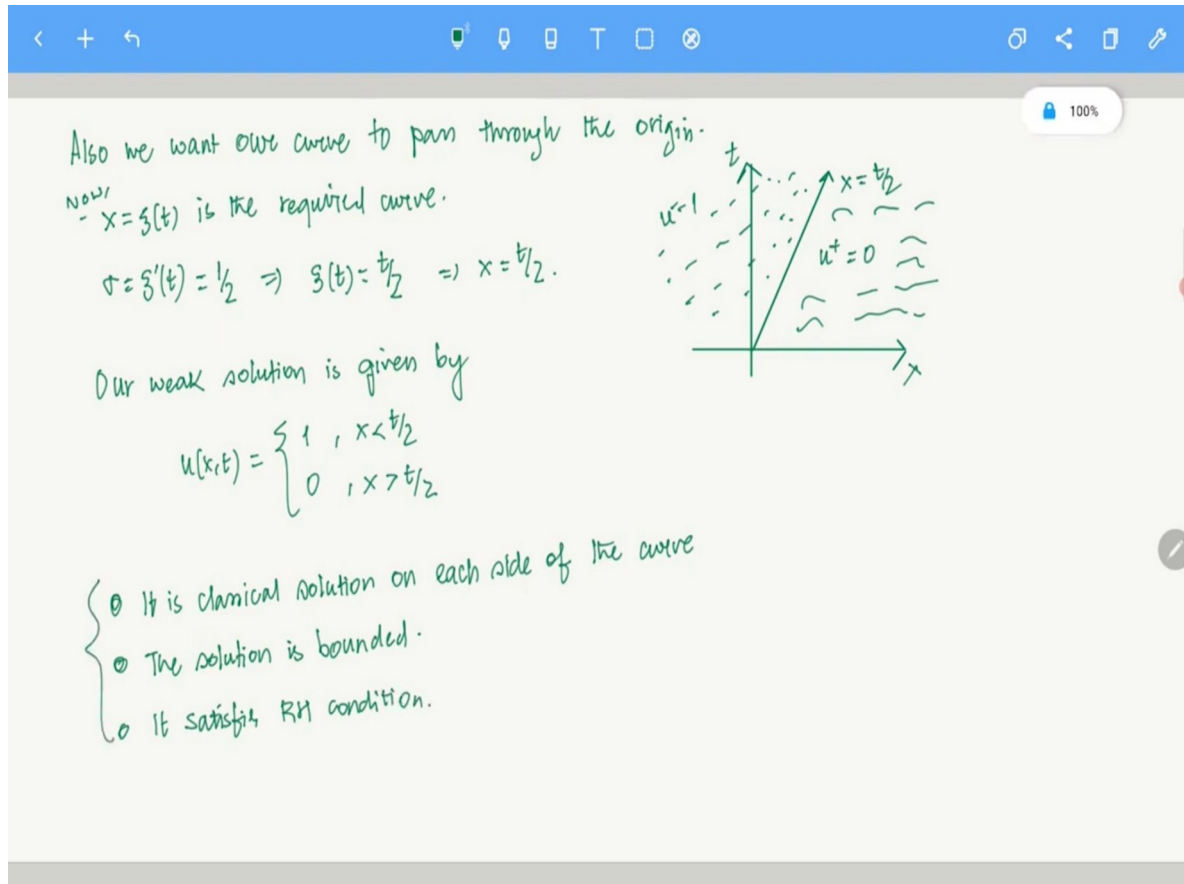 100%
Also we want our curve to pass through the origin.
Now, x = ξ(t) is the required curve.
σ = ξ'(t) = 1/2 ⇒ ξ(t) = t/2 ⇒ x = t/2.
t
x = t/2
u⁻=1
u⁺ = 0
x
Our weak solution is given by
u(x,t) = { 1 , x < t/2
0 , x > t/2
It is classical solution on each side of the curve
The solution is bounded.
It satisfies RH condition.